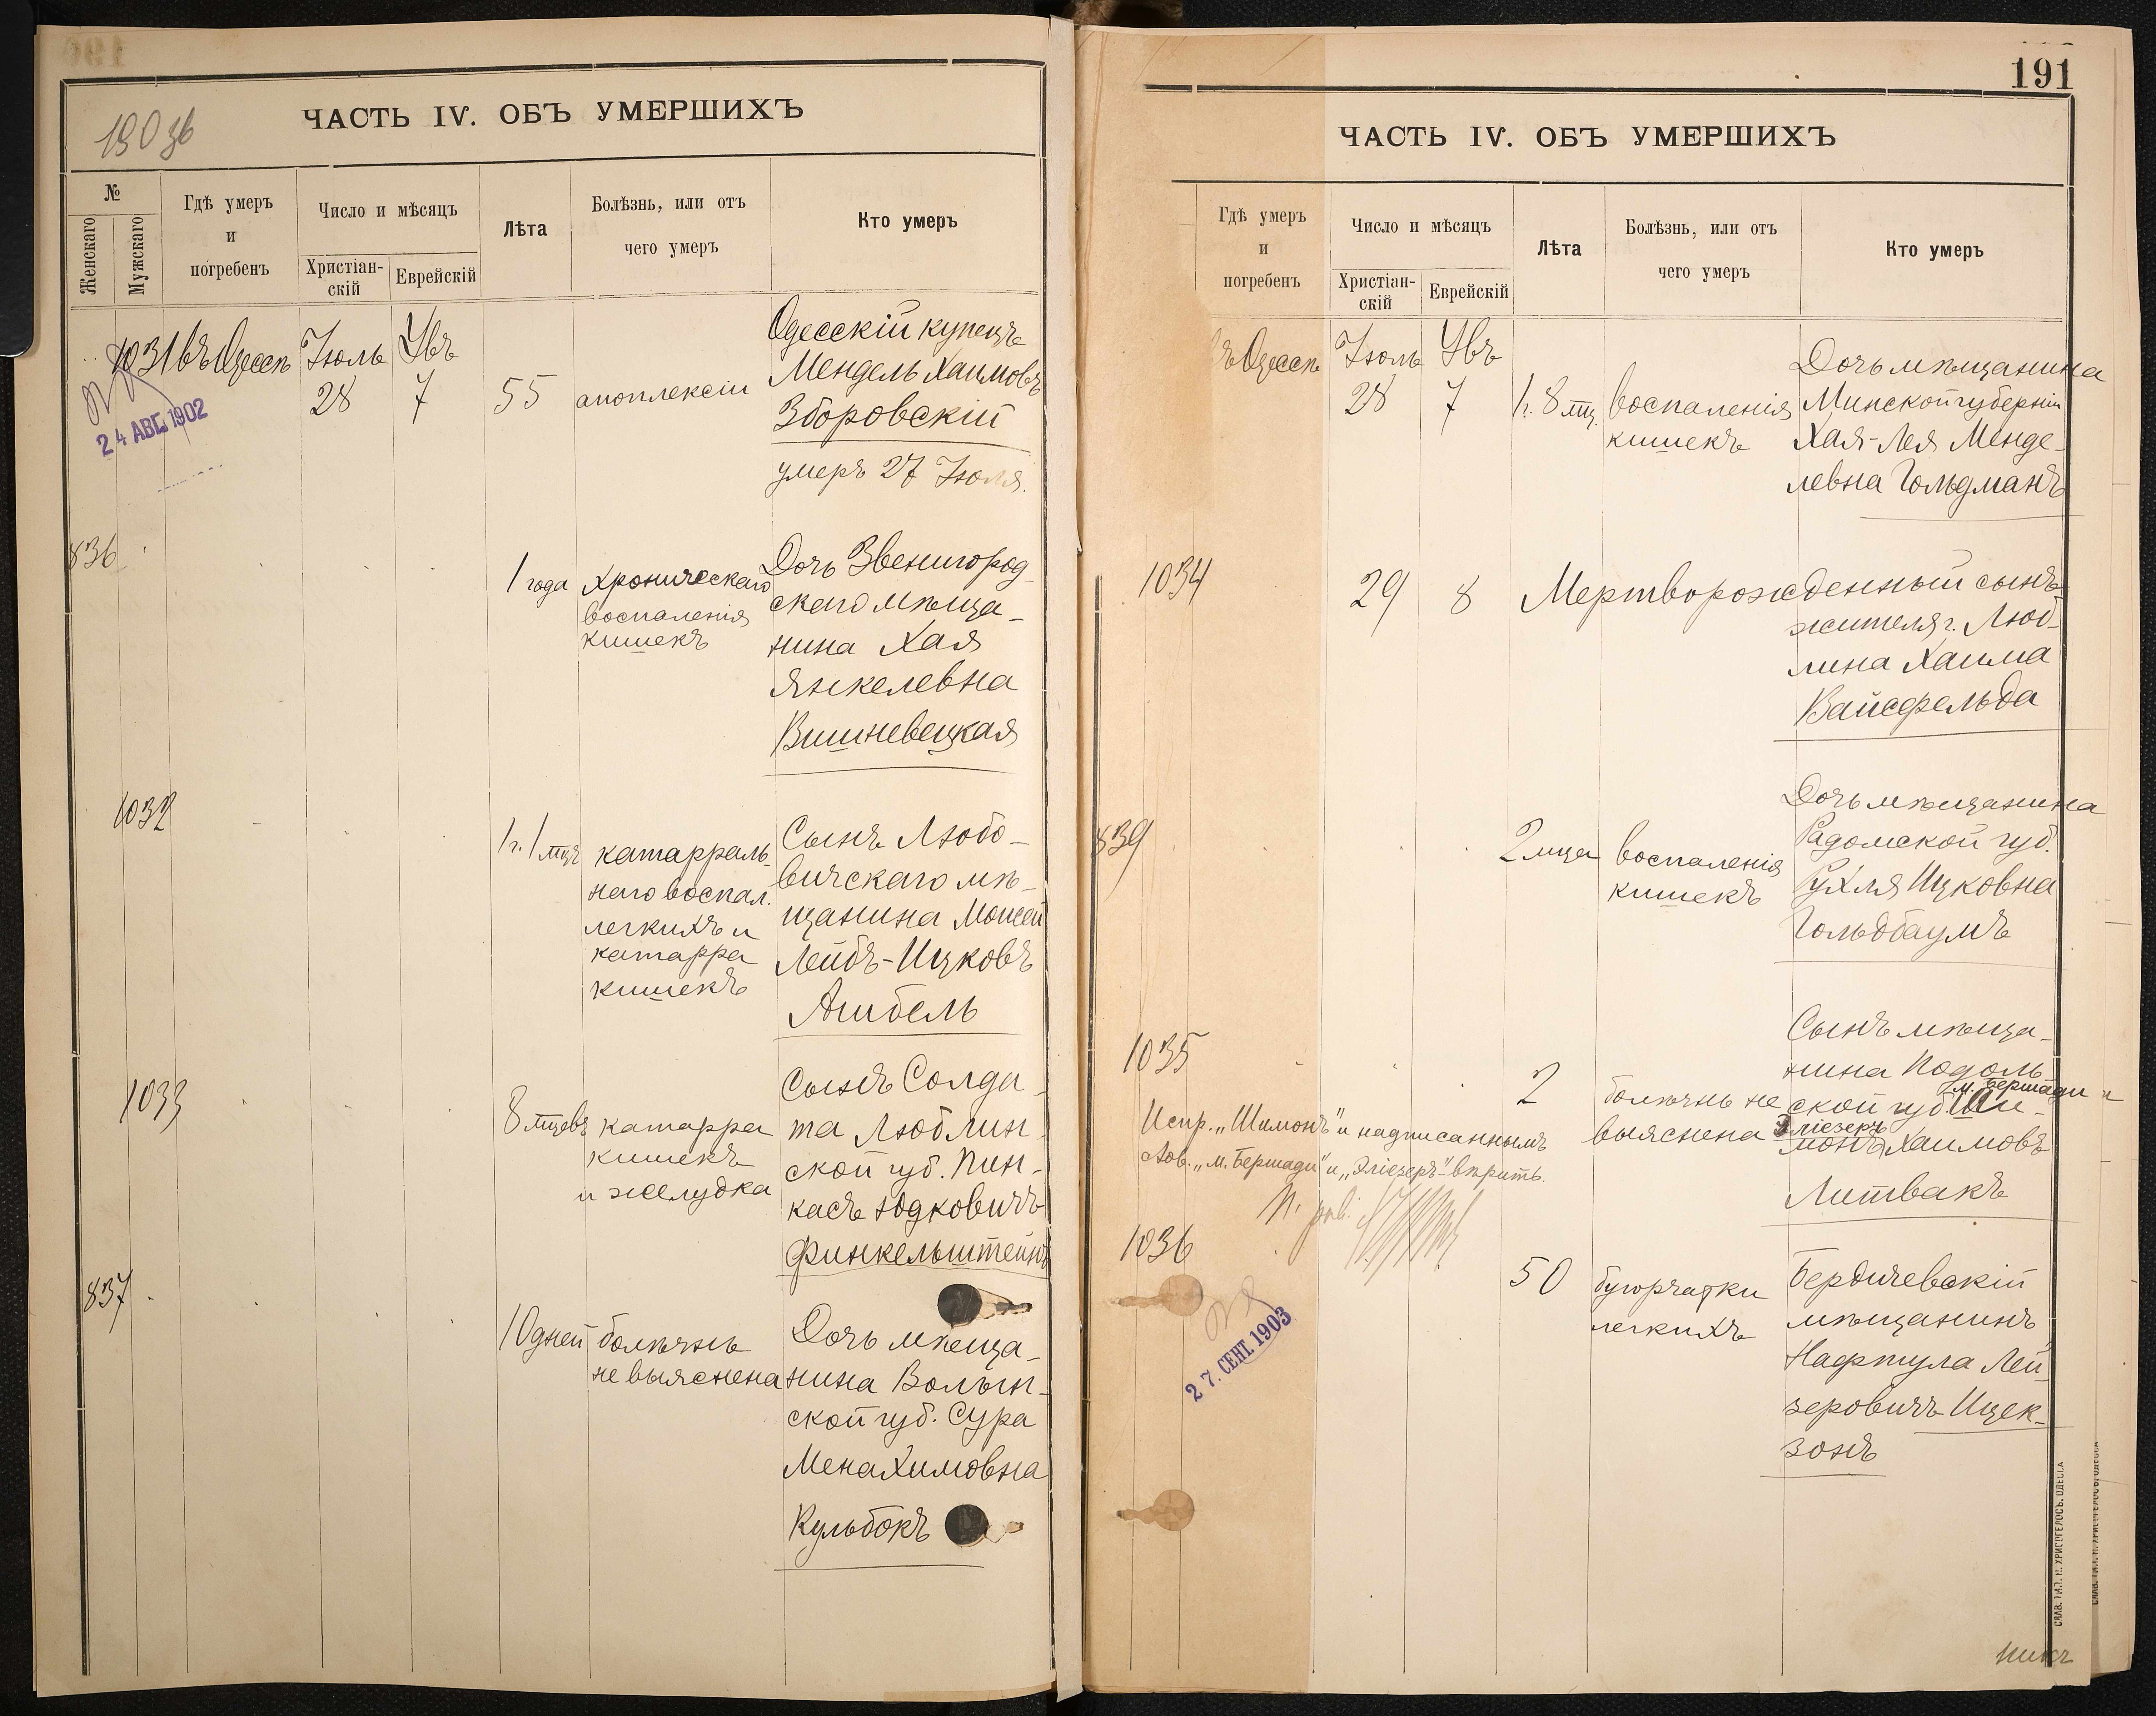 190 зб
ЧАСТЬ IV. ОБЪ УМЕРШИХЪ
№
Женскаго
Мужскаго
Гдѣ умеръ
и
погребенъ
Число и мѣсяцъ
Христіан-
скій
Еврейскій
Лѣта
Болѣзнь, или отъ
чего умеръ
Кто умеръ
1031 въ Одессѣ Іюль 28 Увъ 7 55 апоплексіи
Одесскій купецъ
Мендель Хаимовъ
Зборовскій
умеръ 27 Іюля.
24 АВГ. 1902
836
1 года
Хроническаго
воспаленія
кишекъ
Дочь Звенигород-
скаго мѣща-
нина Хая
Янкелевна
Вишневецкая
1032
1 г. 1 мцъ
катарраль-
наго воспал.
легкихъ и
катарра
кишекъ
Сынъ Любо-
вичскаго мѣ-
щанина Моисей
Лейбъ-Ицковъ
Ашбель
1033
8 мцевъ
катарра
кишекъ
и желудка
Сынъ Солда-
та Люблин-
ской губ. Пин-
касъ Юдковичъ
Финкельштейнъ
837
10 дней
болѣзнь
не выяснена
Дочь мѣща-
нина Волын-
ской губ. Сура
Менахимовна
Кульбокъ
191
ЧАСТЬ IV. ОБЪ УМЕРШИХЪ
Гдѣ умеръ
и
погребенъ
Число и мѣсяцъ
Христіан-
скій
Еврейскій
Лѣта
Болѣзнь, или отъ
чего умеръ
Кто умеръ
въ Одессѣ Іюль 28 Увъ 7 1 г. 8 мц.
воспаленія
кишекъ
Дочь мѣщанина
Минской губерніи
Хая-Лея Менде-
левна Гольдманъ
1034 29 8 Мертворожденный сынъ
жителя г. Люб-
лина Хаима
Вайсфельда
839
2 мца
воспаленія
кишекъ
Дочь мѣщанина
Радомской губ.
Рухля Ицковна
Гольдбаумъ
1035
2
болѣзнь не
выяснена
Сынъ мѣща-
нина Подоль-
м. Бершади и
ской губ. Ши-
Эліезеръ
монъ Хаимовъ
Литвакъ
Испр. „Шимонъ" и надписаннымъ
Лов. „м. Бершади" и „Эліезеръ" вѣрить.
1036
50
бугорчатки
легкихъ
Бердичевскій
мѣщанинъ
Нафтула Лей-
зеровичъ Ицек-
зонъ
27. СЕНТ. 1903
СЛАВ. ТИП. Н. ХРИСОГЕЛОСЪ. ОДЕССА